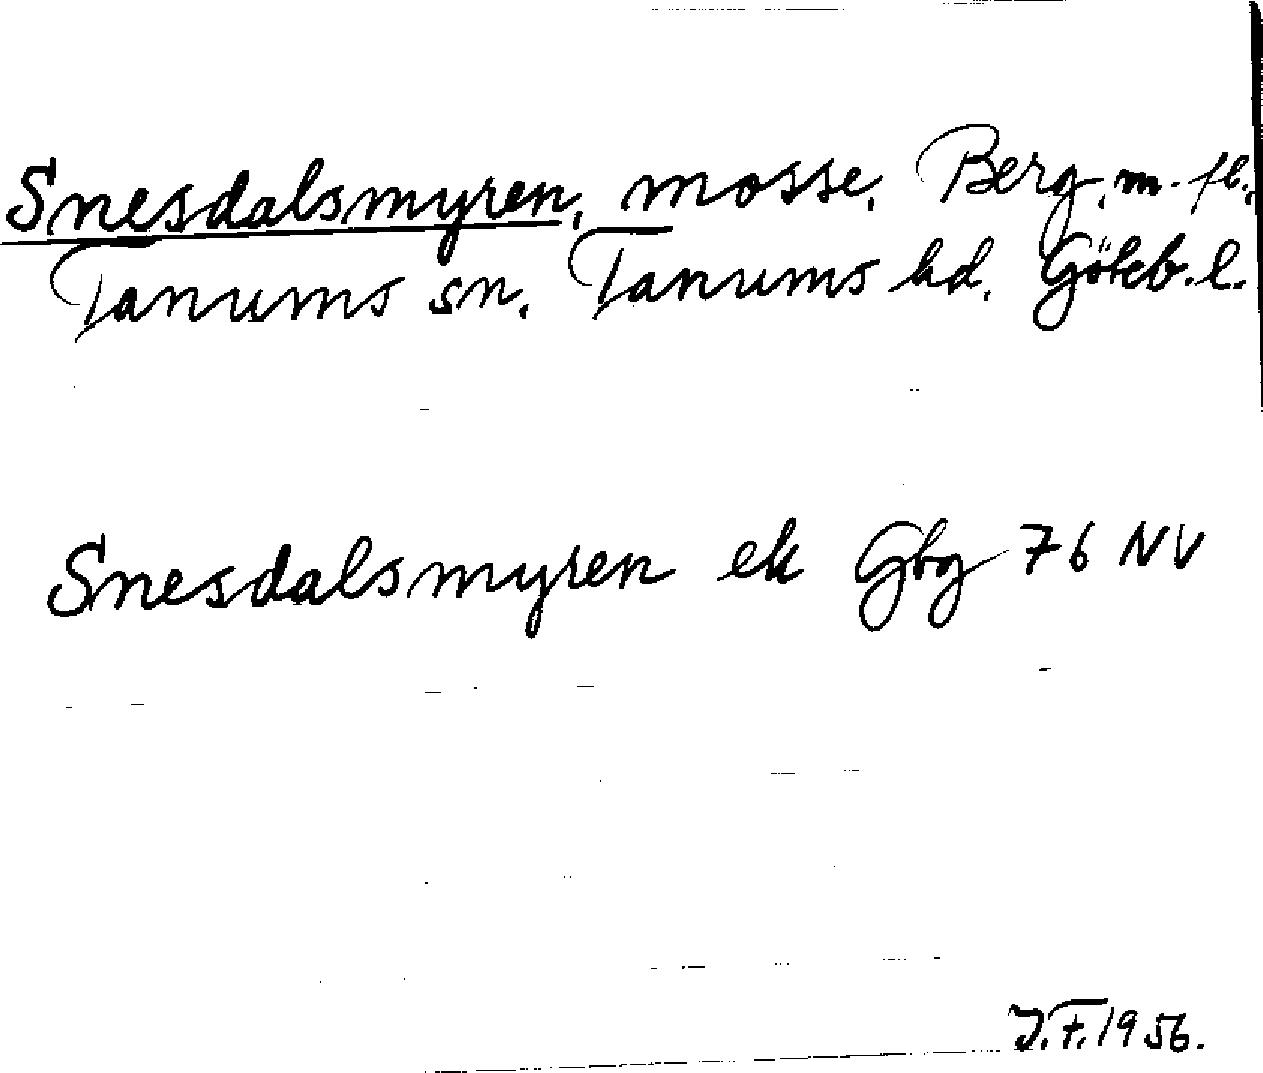 Snesdalsmyren, mosse, Berg, m. fl.,
Tanums sn. Tanums hd. Göteb. l.
Snesdalsmyren ek Gbg 76 NV
J.F. 1956.